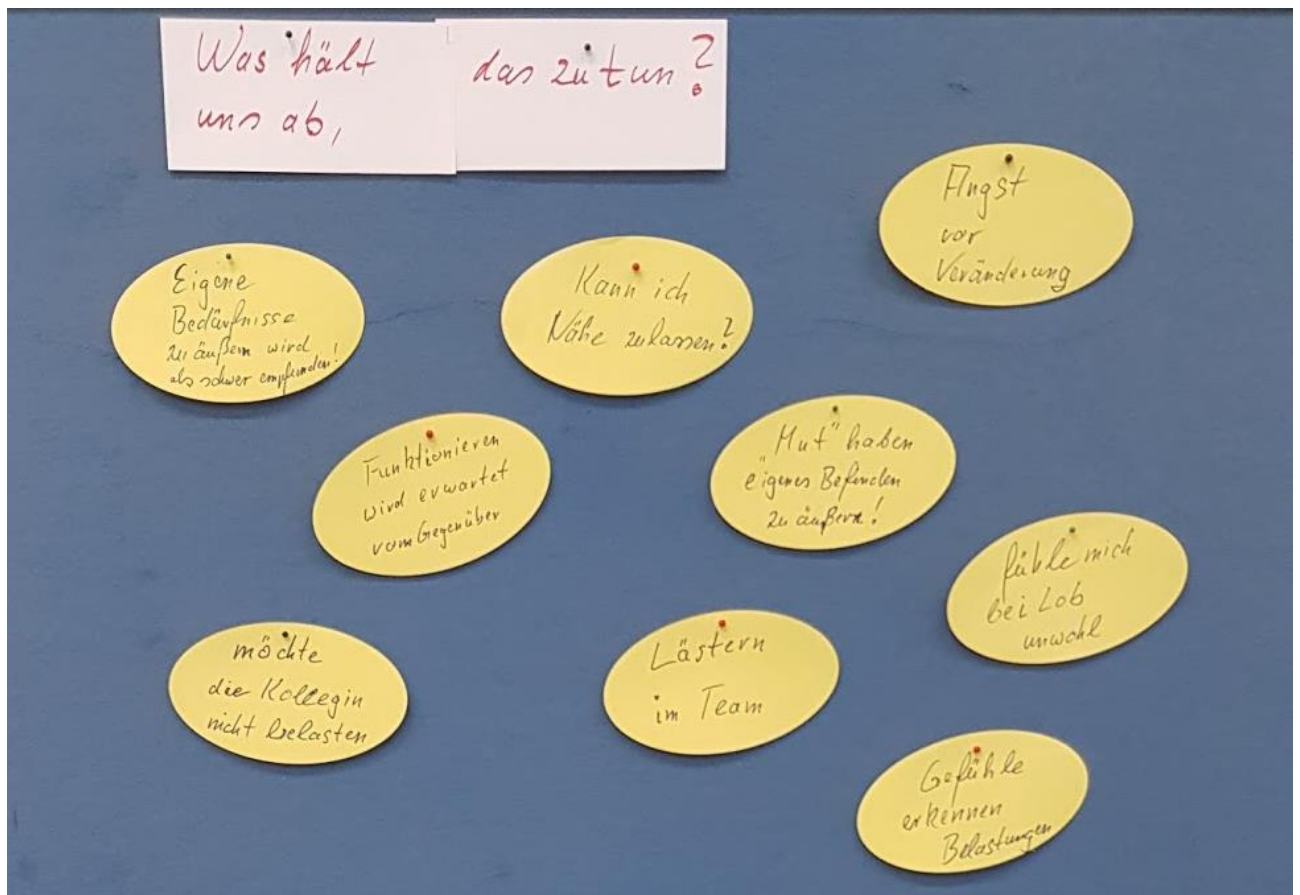 Was hält
uns ab,
das zu tun?
Angst
vor
Veränderung
Eigene
Bedürfnisse
zu äußern wird
als schwer empfunden!
Kann ich
Nähe zulassen?
Funktionieren
wird erwartet
vom Gegenüber
"Mut" haben
eigenes Befinden
zu äußern!
fühle mich
bei Lob
unwohl
möchte
die Kollegin
nicht belasten
Lästern
im Team
Gefühle
erkennen
Belastungen